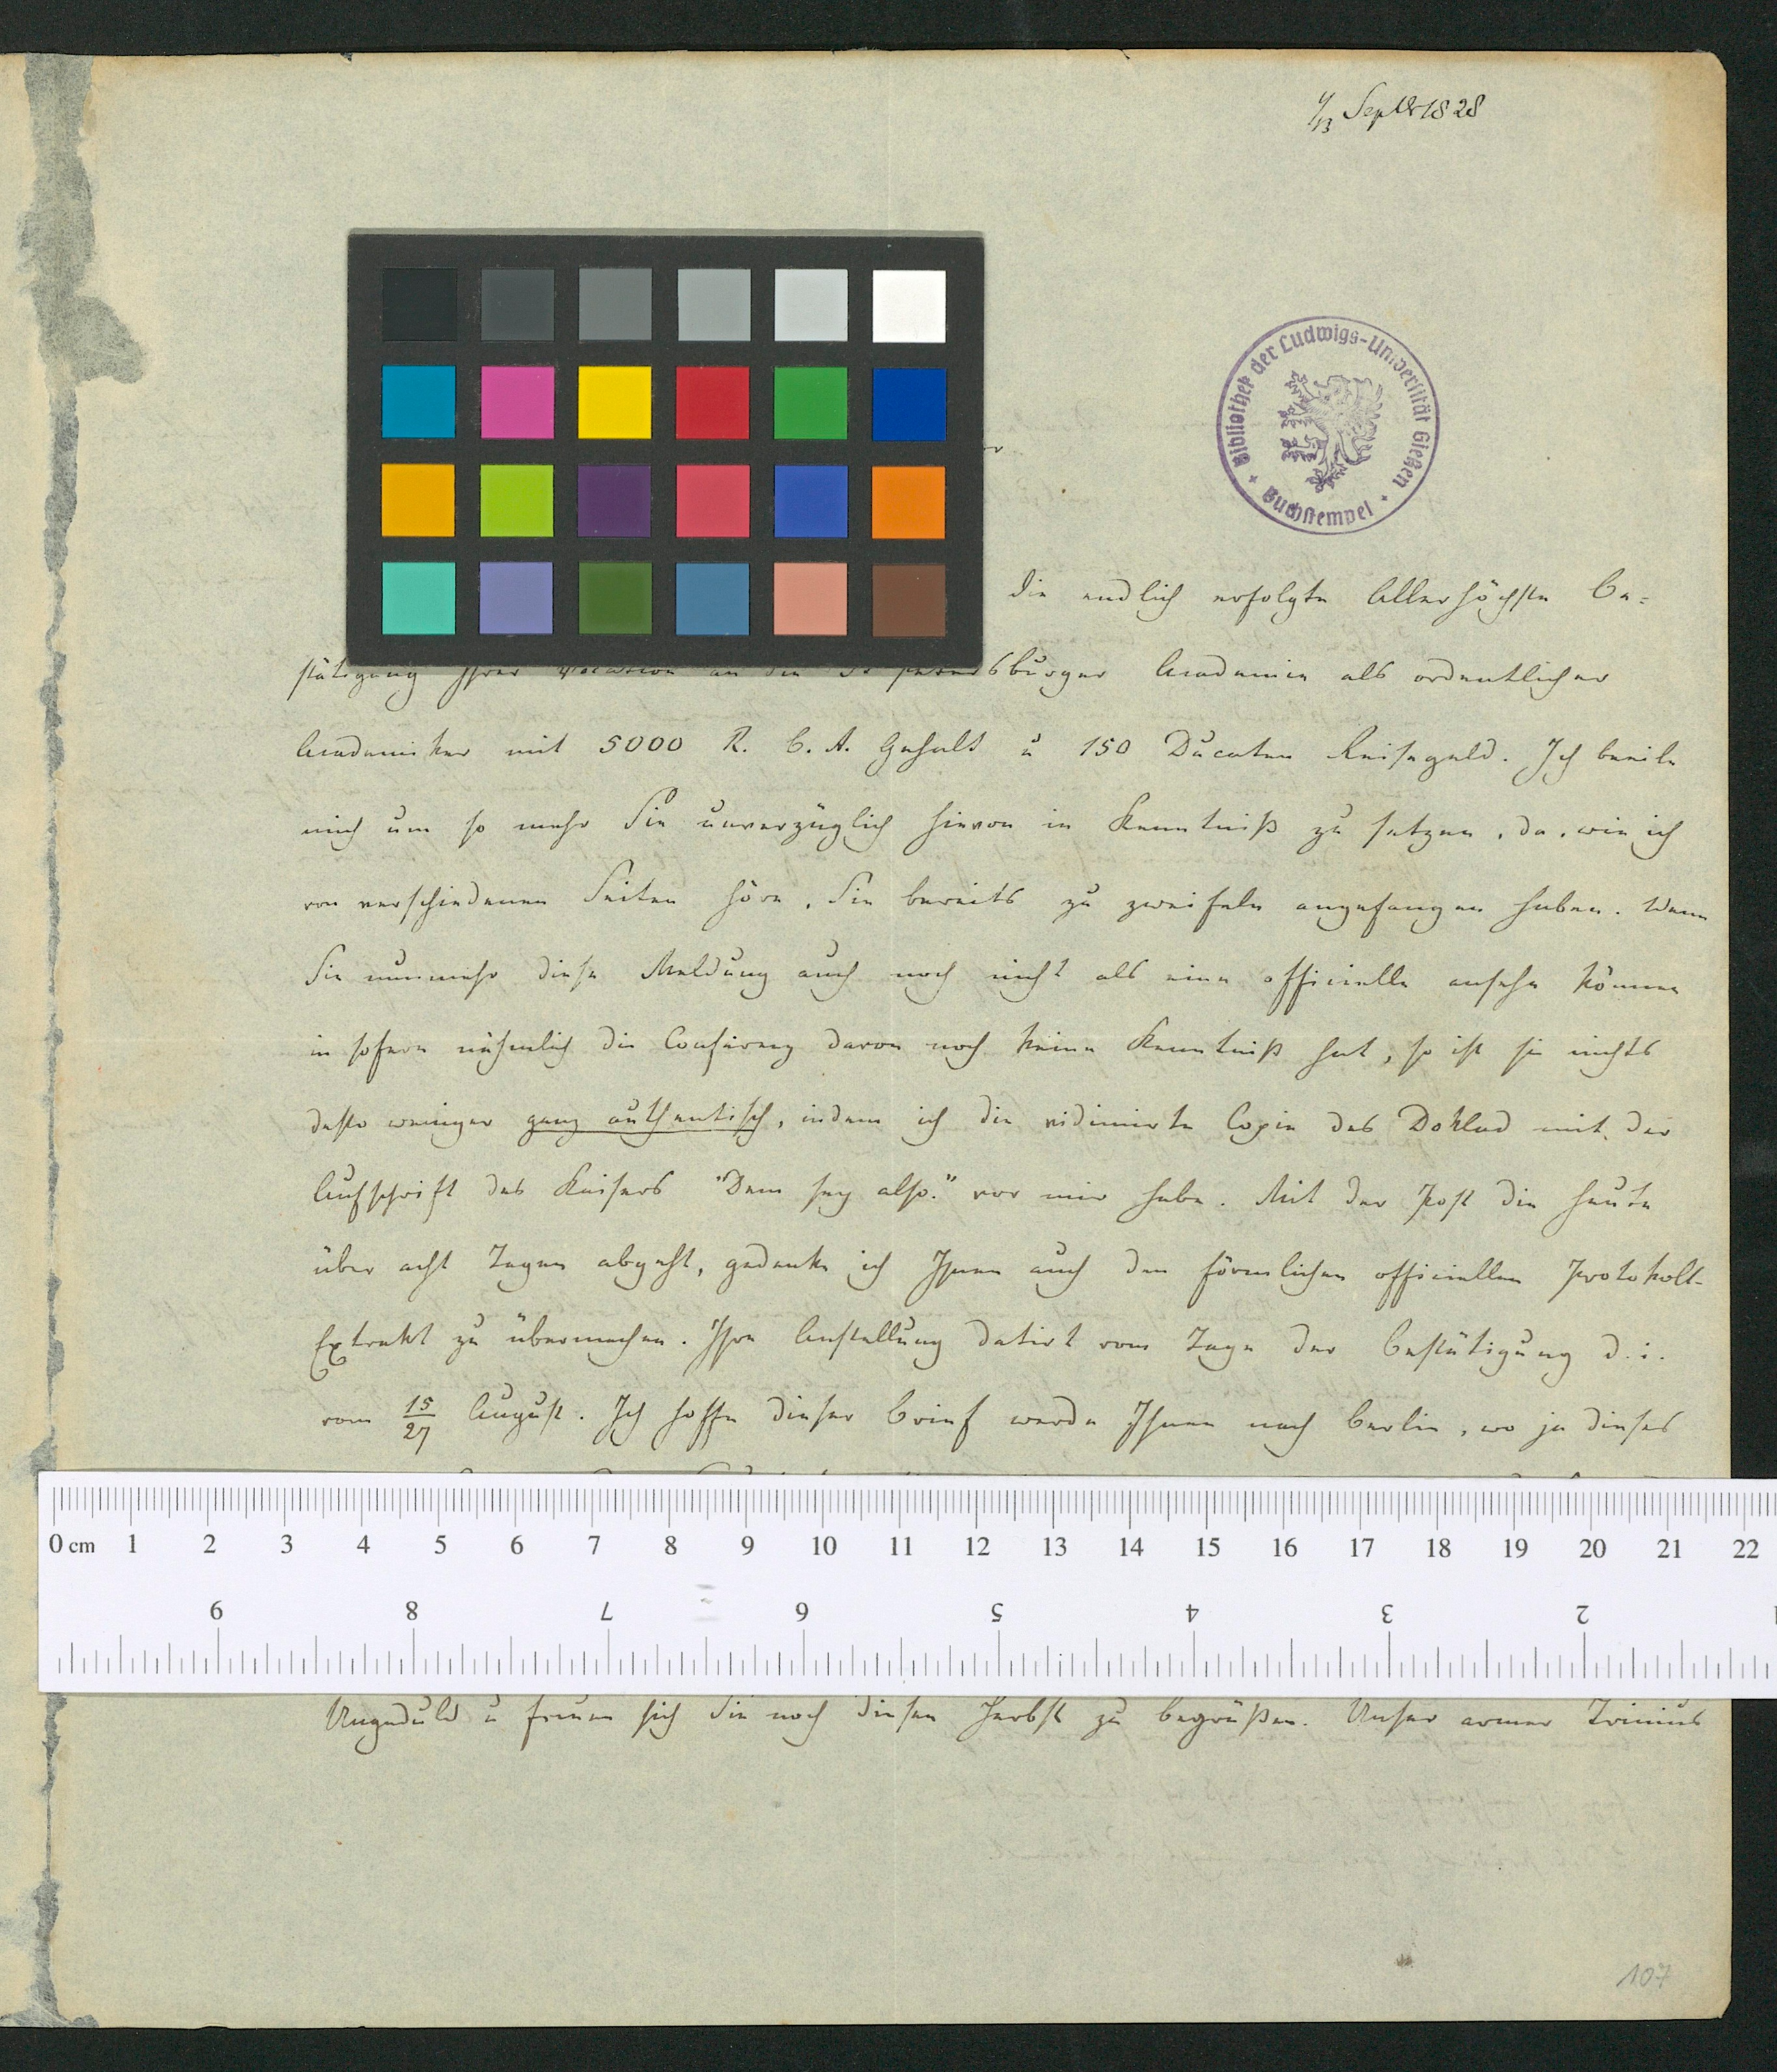 1/13 Septbr 1828
Bibliothek der Ludwigs-Universität Gießen
Buchstempel
die endlich erfolgte Allerhöchste Be=
stätigung Ihrer Vocation an die St Petersburger Academie als ordentlicher
Academiker mit 5000 R. B. A. Gehalt u 150 Ducaten Reisegeld. Ich beeile
mich um so mehr Sie unverzüglich hievon in Kenntniß zu setzen, da, wie ich
von verschiedenen Seiten höre, Sie bereits zu zweifeln angefangen haben. Wenn
Sie nunmehr diese Meldung auch noch nicht als eine officielle ansehn können
in sofern nähmlich die Conferenz davon noch keine Kenntniß hat, so ist sie nichts
desto weniger ganz authentisch, indem ich die vidimirte Copie des Doklad mit der
Aufschrift des Kaisers "Dem sey also." vor mir habe. Mit der Post die heute
über acht Tagen abgeht, gedenke ich Ihnen auch den förmlichen officiellen Protokoll-
Extrakt zu übermachen. Ihre Anstellung datirt vom Tage der Bestätigung d. i.
vom 15/27 August. Ich hoffe dieser Brief werde Ihnen nach Berlin, wo ja dieses
0 cm 1 2 3 4 5 6 7 8 9 10 11 12 13 14 15 16 17 18 19 20 21 22
9 8 7 6 5 4 3 2 1
Ungeduld u freuen sich Sie noch diesen Herbst zu begrüßen. Unser armer Trinius
107